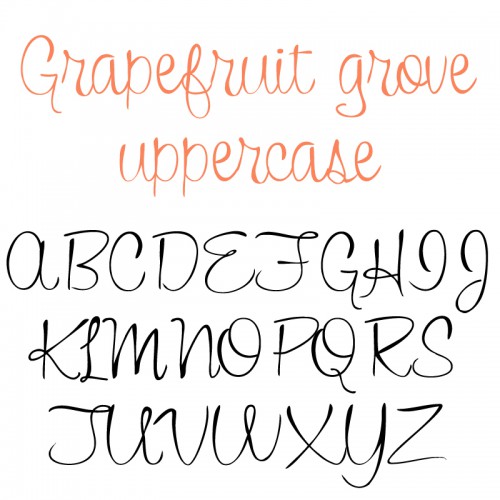 Grapefruit grove
uppercase
ABCDEFGHIJ
KLMNOPQRS
TUVWXYZ